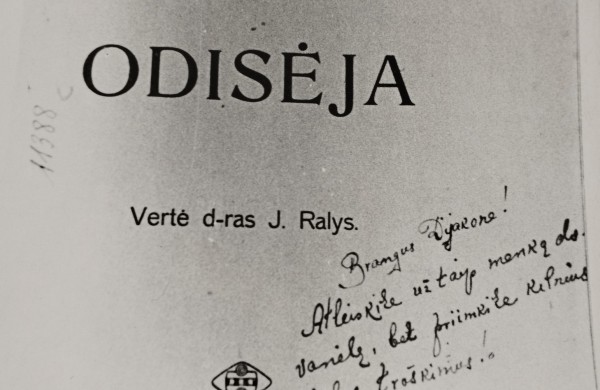 ODISĖJA
11388
Vertė d-ras J. Ralys.
Brangus Djakone!
Atleiskite už taip menką do-
vanėlę, bet priimkite kilnius
troškimus!